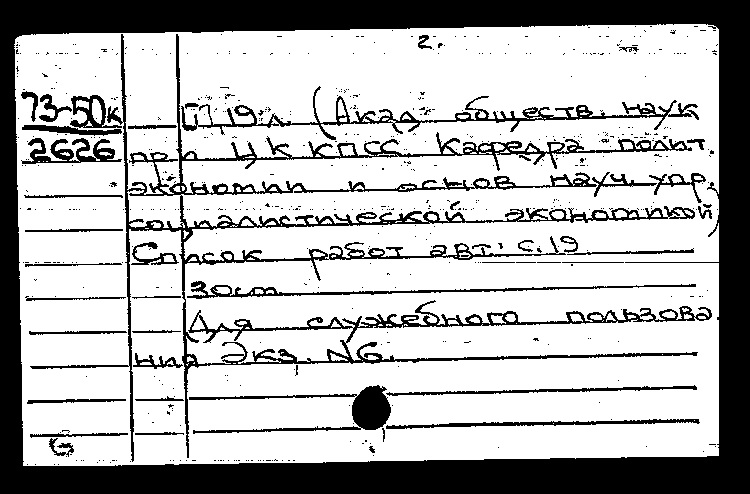 2.
73-50к
2626
[1], 19 л. (Акад. обществ. наук
при ЦК КПСС. Кафедра полит.
экономии и основ науч. упр.
социалистической экономикой)
Список работ авт.: с. 19
30см
Для служебного пользова
ния Экз. N6.